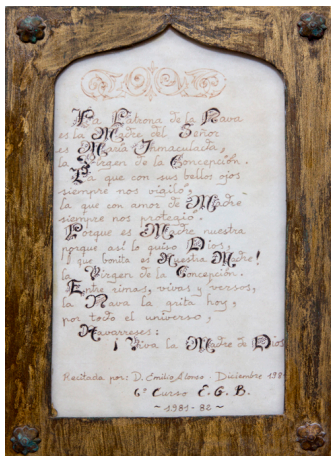 La Patrona de la Nava
es la Madre del Señor
es María Inmaculada,
la Virgen de la Concepción.
La que con sus bellos ojos
siempre nos vigiló,
la que con amor de Madre
siempre nos protegió.
Porque es Madre nuestra
porque así lo quiso Dios,
¡que bonita es Nuestra Madre!
la Virgen de la Concepción.
Entre rimas, vivas y versos,
la Nava la grita hoy,
por todo el universo,
Navarreses:
¡Viva la Madre de Dios
Recitada por: D. Emilio Alonso. Diciembre 198
6º Curso E.G.B.
~1981-82~